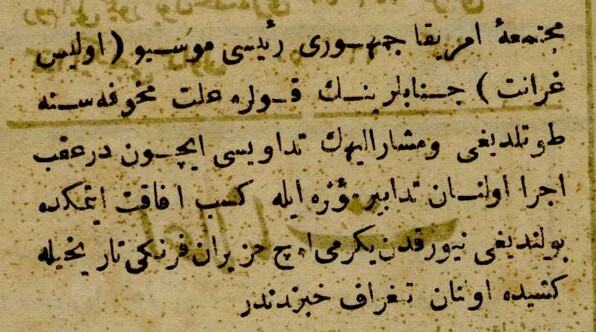 مجتمعهٔ امریقا جمهوری رئیسی موسیو (اولیس
غرانت) جنابلرینك قوله علت مخوفه‌سنه
طوتلدیغی ومشارالیهك تداویسی ایچون درعقب
اجرا اولنان تدابیر مؤثره ایله کسب افاقت ایتمکده
بولندیغی نیورقدن یکرمی اوچ حزیران فرنکی تاریخیله
کشیده اولنان تلغراف خبرندندر